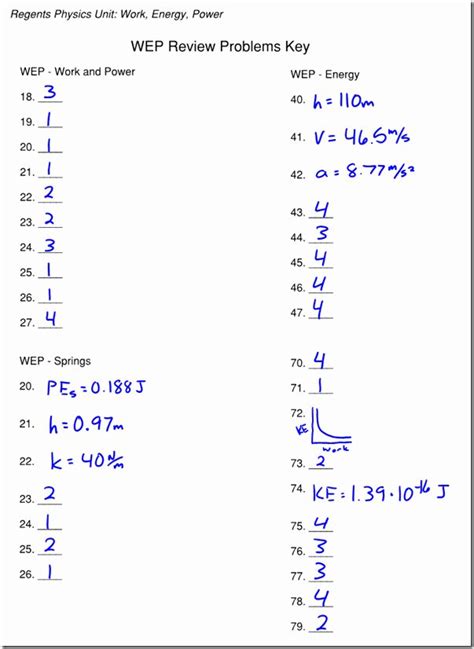 Regents Physics Unit: Work, Energy, Power
WEP Review Problems Key
WEP - Work and Power
18. 3
19. 1
20. 1
21. 1
22. 2
23. 2
24. 3
25. 1
26. 1
27. 4
WEP - Springs
20. PEs = 0.188 J
21. h = 0.97m
22. k = 40 N/m
23. 2
24. 1
25. 2
26. 1
WEP - Energy
40. h = 110m
41. V = 46.5 m/s
42. a = 8.77 m/s²
43. 4
44. 3
45. 4
46. 4
47. 4
70. 4
71. 1
72.
KE
work
73. 2
74. KE = 1.39·10⁻¹⁶ J
75. 4
76. 3
77. 3
78. 4
79. 2